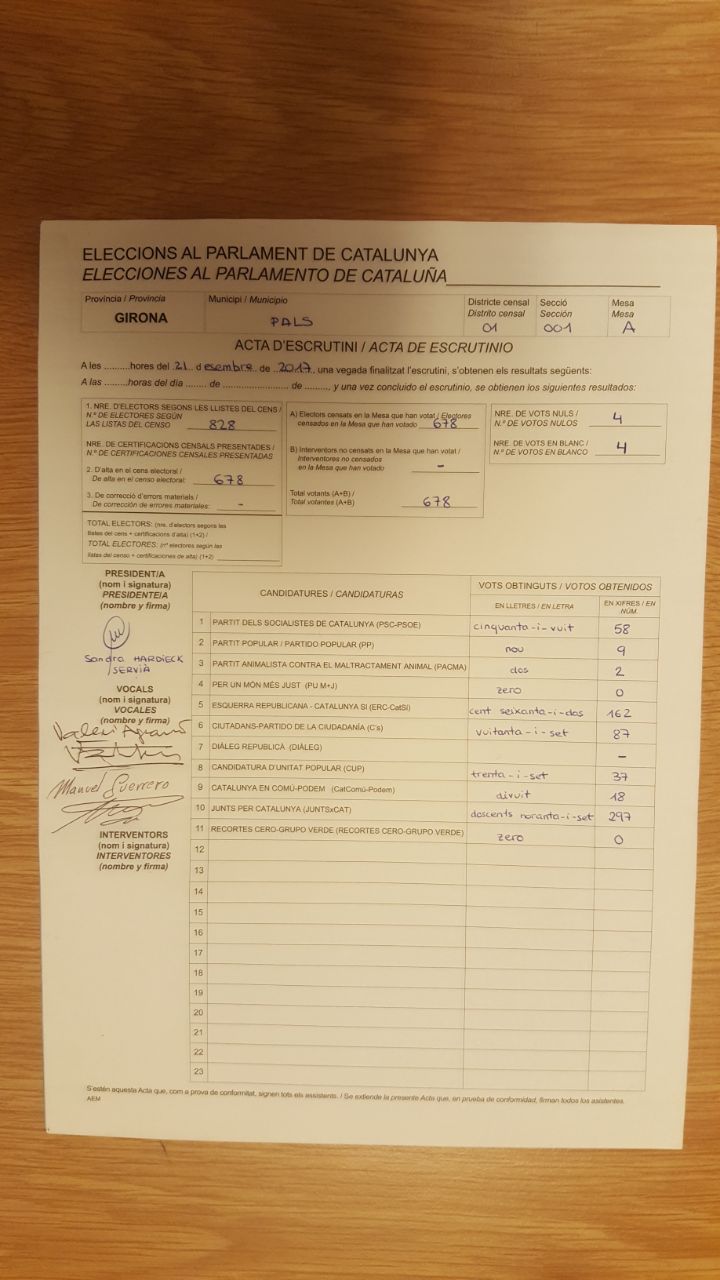 ELECCIONS AL PARLAMENT DE CATALUNYA
ELECCIONES AL PARLAMENTO DE CATALUÑA
Província / Provincia
GIRONA
Municipi / Municipio
PALS
Districte censal
Distrito censal
01
Secció
Sección
001
Mesa
Mesa
A
ACTA D'ESCRUTINI / ACTA DE ESCRUTINIO
A les ..........hores del 21 d esembre de 2017, una vegada finalitzat l'escrutini, s'obtenen els resultats següents:
A las ........horas del día ....... de ........................ de ........., y una vez concluido el escrutinio, se obtienen los siguientes resultados:
1. NRE. D'ELECTORS SEGONS LES LLISTES DEL CENS /
N.º DE ELECTORES SEGÚN
LAS LISTAS DEL CENSO 828
NRE. DE CERTIFICACIONS CENSALS PRESENTADES /
N.º DE CERTIFICACIONES CENSALES PRESENTADAS
2. D'alta en el cens electoral /
De alta en el censo electoral: 678
3. De correcció d'errors materials /
De corrección de errores materiales: -
TOTAL ELECTORS: (nre. d'electors segons les
llistes del cens + certificacions d'alta) (1+2) /
TOTAL ELECTORES: (nº electores según las
listas del censo + certificaciones de alta) (1+2)
A) Electors censats en la Mesa que han votat / Electores
censados en la Mesa que han votado 678
B) Interventors no censats en la Mesa que han votat /
Interventores no censados
en la Mesa que han votado -
Total votants (A+B) /
Total votantes (A+B) 678
NRE. DE VOTS NULS /
N.º DE VOTOS NULOS 4
NRE. DE VOTS EN BLANC /
N.º DE VOTOS EN BLANCO 4
PRESIDENT/A
(nom i signatura)
PRESIDENTE/A
(nombre y firma)
Sandra HARDIECK
SERVIÀ
VOCALS
(nom i signatura)
VOCALES
(nombre y firma)
Manuel Guerrero
INTERVENTORS
(nom i signatura)
INTERVENTORES
(nombre y firma)
CANDIDATURES / CANDIDATURAS
VOTS OBTINGUTS / VOTOS OBTENIDOS
EN LLETRES / EN LETRA
EN XIFRES / EN NÚM.
1 PARTIT DELS SOCIALISTES DE CATALUNYA (PSC-PSOE) cinquanta-i-vuit 58
2 PARTIT POPULAR / PARTIDO POPULAR (PP) nou 9
3 PARTIT ANIMALISTA CONTRA EL MALTRACTAMENT ANIMAL (PACMA) dos 2
4 PER UN MÓN MÉS JUST (PU M+J) zero 0
5 ESQUERRA REPUBLICANA - CATALUNYA SI (ERC-CatSI) cent seixanta-i-dos 162
6 CIUTADANS-PARTIDO DE LA CIUDADANÍA (C's) vuitanta-i-set 87
7 DIÀLEG REPUBLICÀ (DIÀLEG) -
8 CANDIDATURA D'UNITAT POPULAR (CUP) trenta-i-set 37
9 CATALUNYA EN COMÚ-PODEM (CatComú-Podem) divuit 18
10 JUNTS PER CATALUNYA (JUNTSxCAT) doscents noranta-i-set 297
11 RECORTES CERO-GRUPO VERDE (RECORTES CERO-GRUPO VERDE) zero 0
12
13
14
15
16
17
18
19
20
21
22
23
S'estén aquesta Acta que, com a prova de conformitat, signen tots els assistents. / Se extiende la presente Acta que, en prueba de conformidad, firman todos los asistentes.
AEM